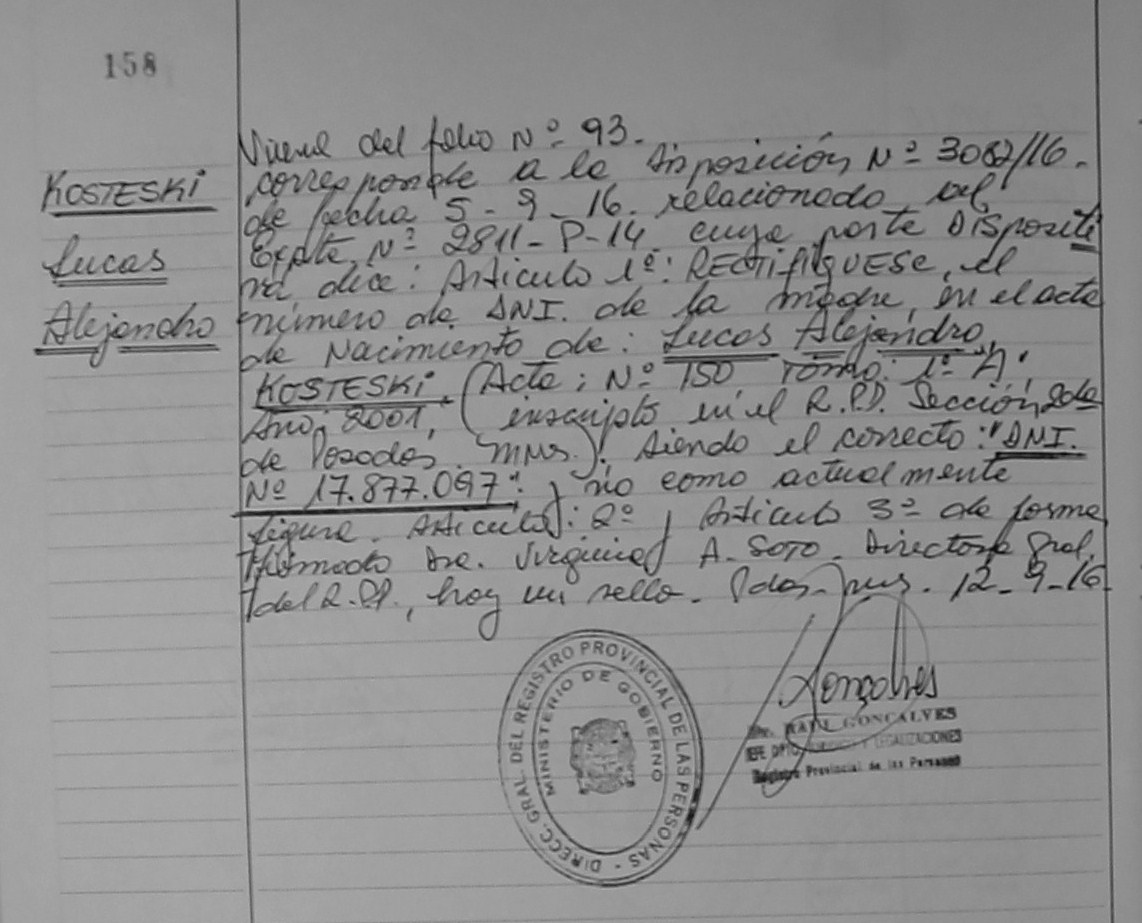 158
KOSTESKI
Lucas
Alejandro
Viene del folio Nº 93.
corresponde a la Disposición Nº 3062/16.
de fecha 5-9-16. relacionado al
Expte. Nº 2811-P-14. cuya parte Dispositi
va, dice: Articulo 1º: RECTIFIQUESE, el
número de DNI. de la madre, en el acta
de Nacimiento de: Lucas Alejandro
KOSTESKI. (Acta: Nº 150 Tomo: 1º "A",
Año: 2001, inscripto en el R.P.P. Sección 2da
de Posadas. Mnes.) Siendo el correcto: "DNI.
Nº 17.877.097". y no como actualmente
figura. Articulo: 2º y Articulo 3º de forma
Firmado Dra. Virginia A. Soto. Directora Gral.
del R.P.P., hay un sello. Pdas. Mns. 12-9-16
DIRECC. GRAL. DEL REGISTRO PROVINCIAL DE LAS PERSONAS -
MINISTERIO DE GOBIERNO
Goncalves
RAUL GONCALVES
JEFE DPTO. Y LEGALIZACIONES
Registro Provincial de las Personas